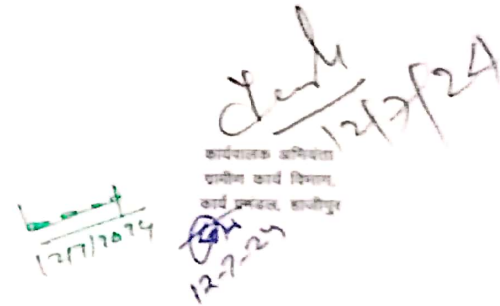 12/7/24
कार्यपालक अभियंता
ग्रामीण कार्य विभाग,
कार्य प्रमंडल, हाजीपुर
12/7/2024
12-7-24